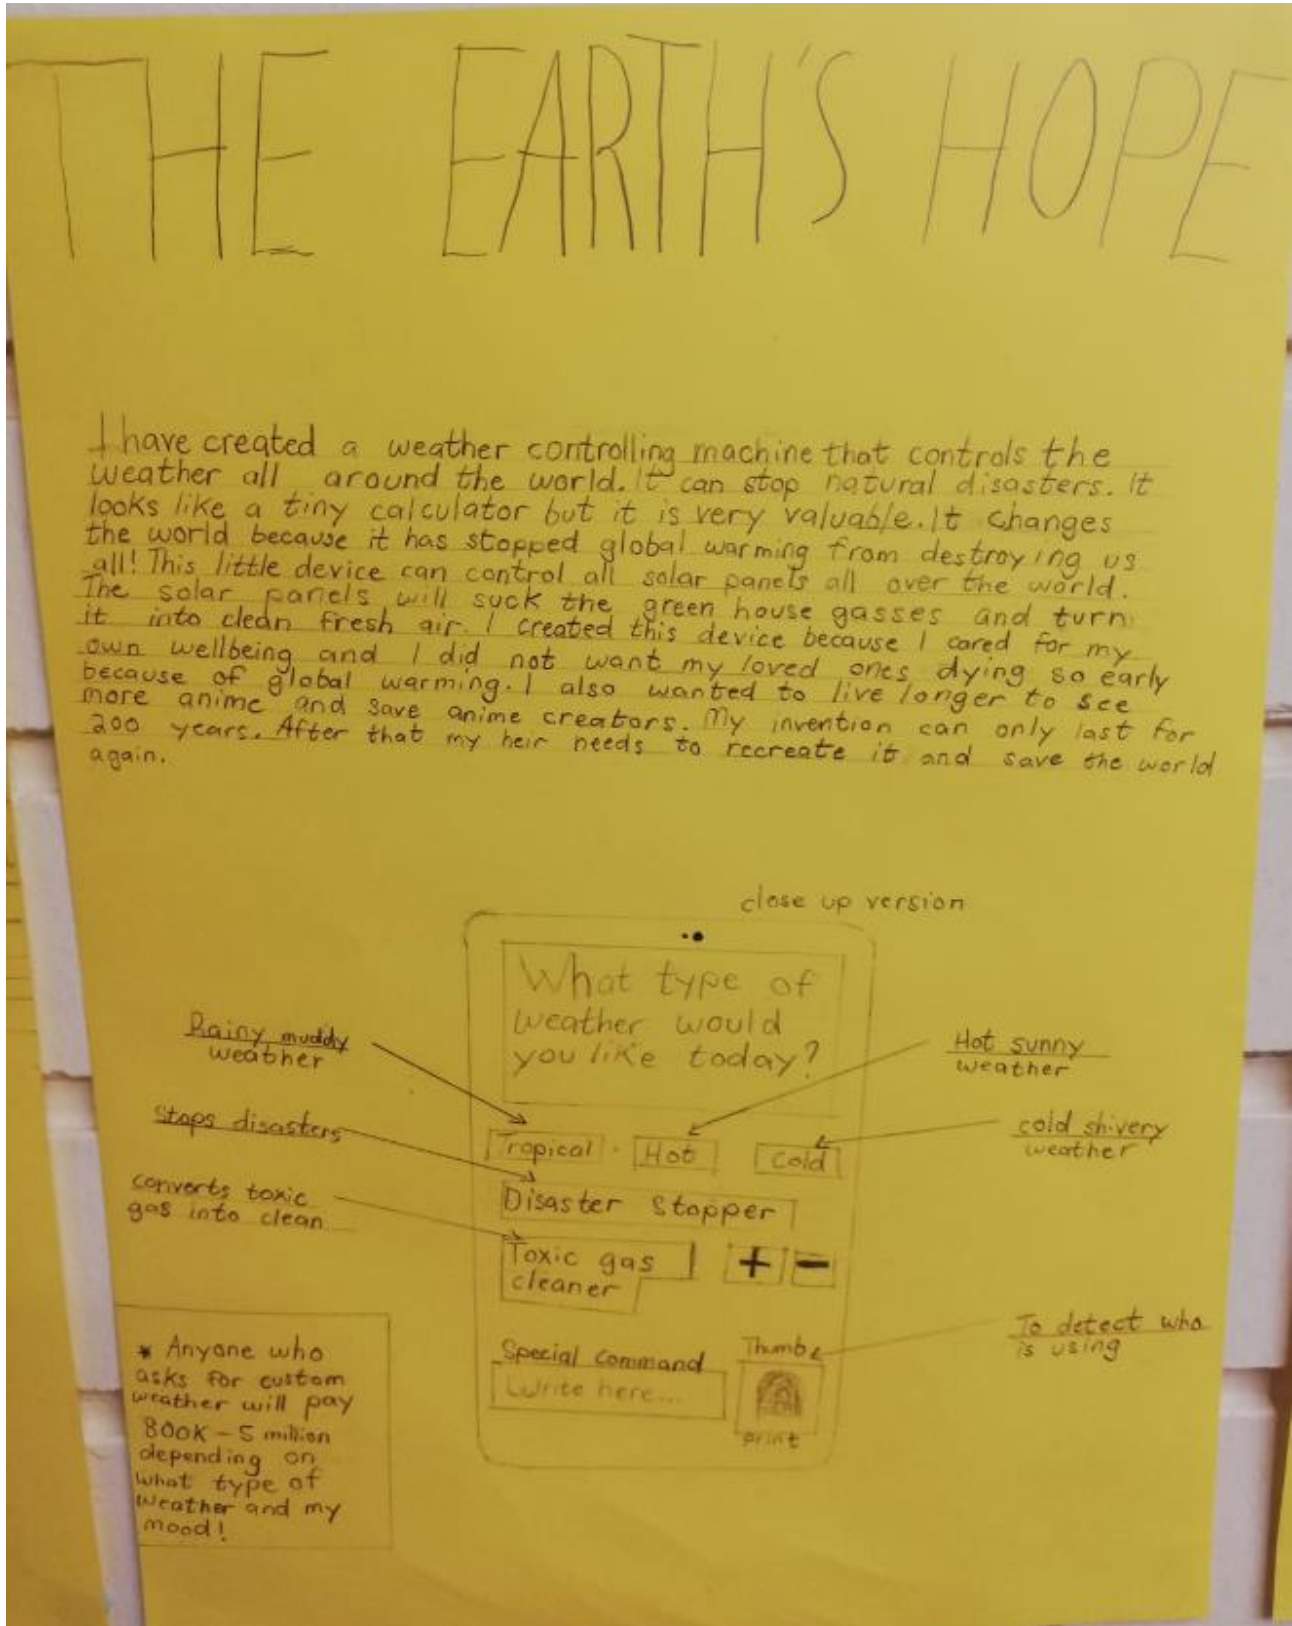 THE EARTH'S HOPE
I have created a weather controlling machine that controls the
weather all around the world. It can stop natural disasters. It
looks like a tiny calculator but it is very valuable. It changes
the world because it has stopped global warming from destroying us
all! This little device can control all solar panels all over the world.
The solar panels will suck the green house gasses and turn
it into clean fresh air. I created this device because I cared for my
own wellbeing and I did not want my loved ones dying so early
because of global warming. I also wanted to live longer to see
more anime and save anime creators. My invention can only last for
200 years. After that my heir needs to recreate it and save the world
again.
close up version
What type of
weather would
you like today?
Rainy muddy
weather
Hot sunny
weather
Stops disasters
cold shivery
weather
Tropical
Hot
Cold
converts toxic
gas into clean
Disaster Stopper
Toxic gas
cleaner
+ -
To detect who
is using
Special Command
Write here...
Thumb
print
* Anyone who
asks for custom
weather will pay
800K - 5 million
depending on
what type of
weather and my
mood!